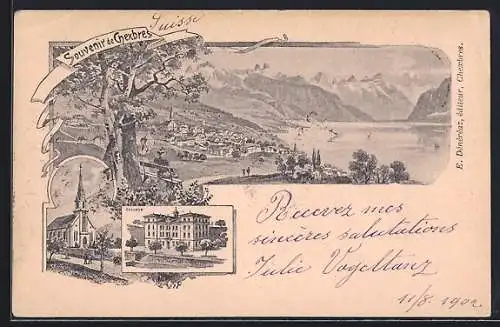 Souvenir de Chexbres
Suisse
E. Dénéréaz, éditeur, Chexbres.
Recevez mes
sincères salutations
Julie Vogeltanz
11/8. 1902.